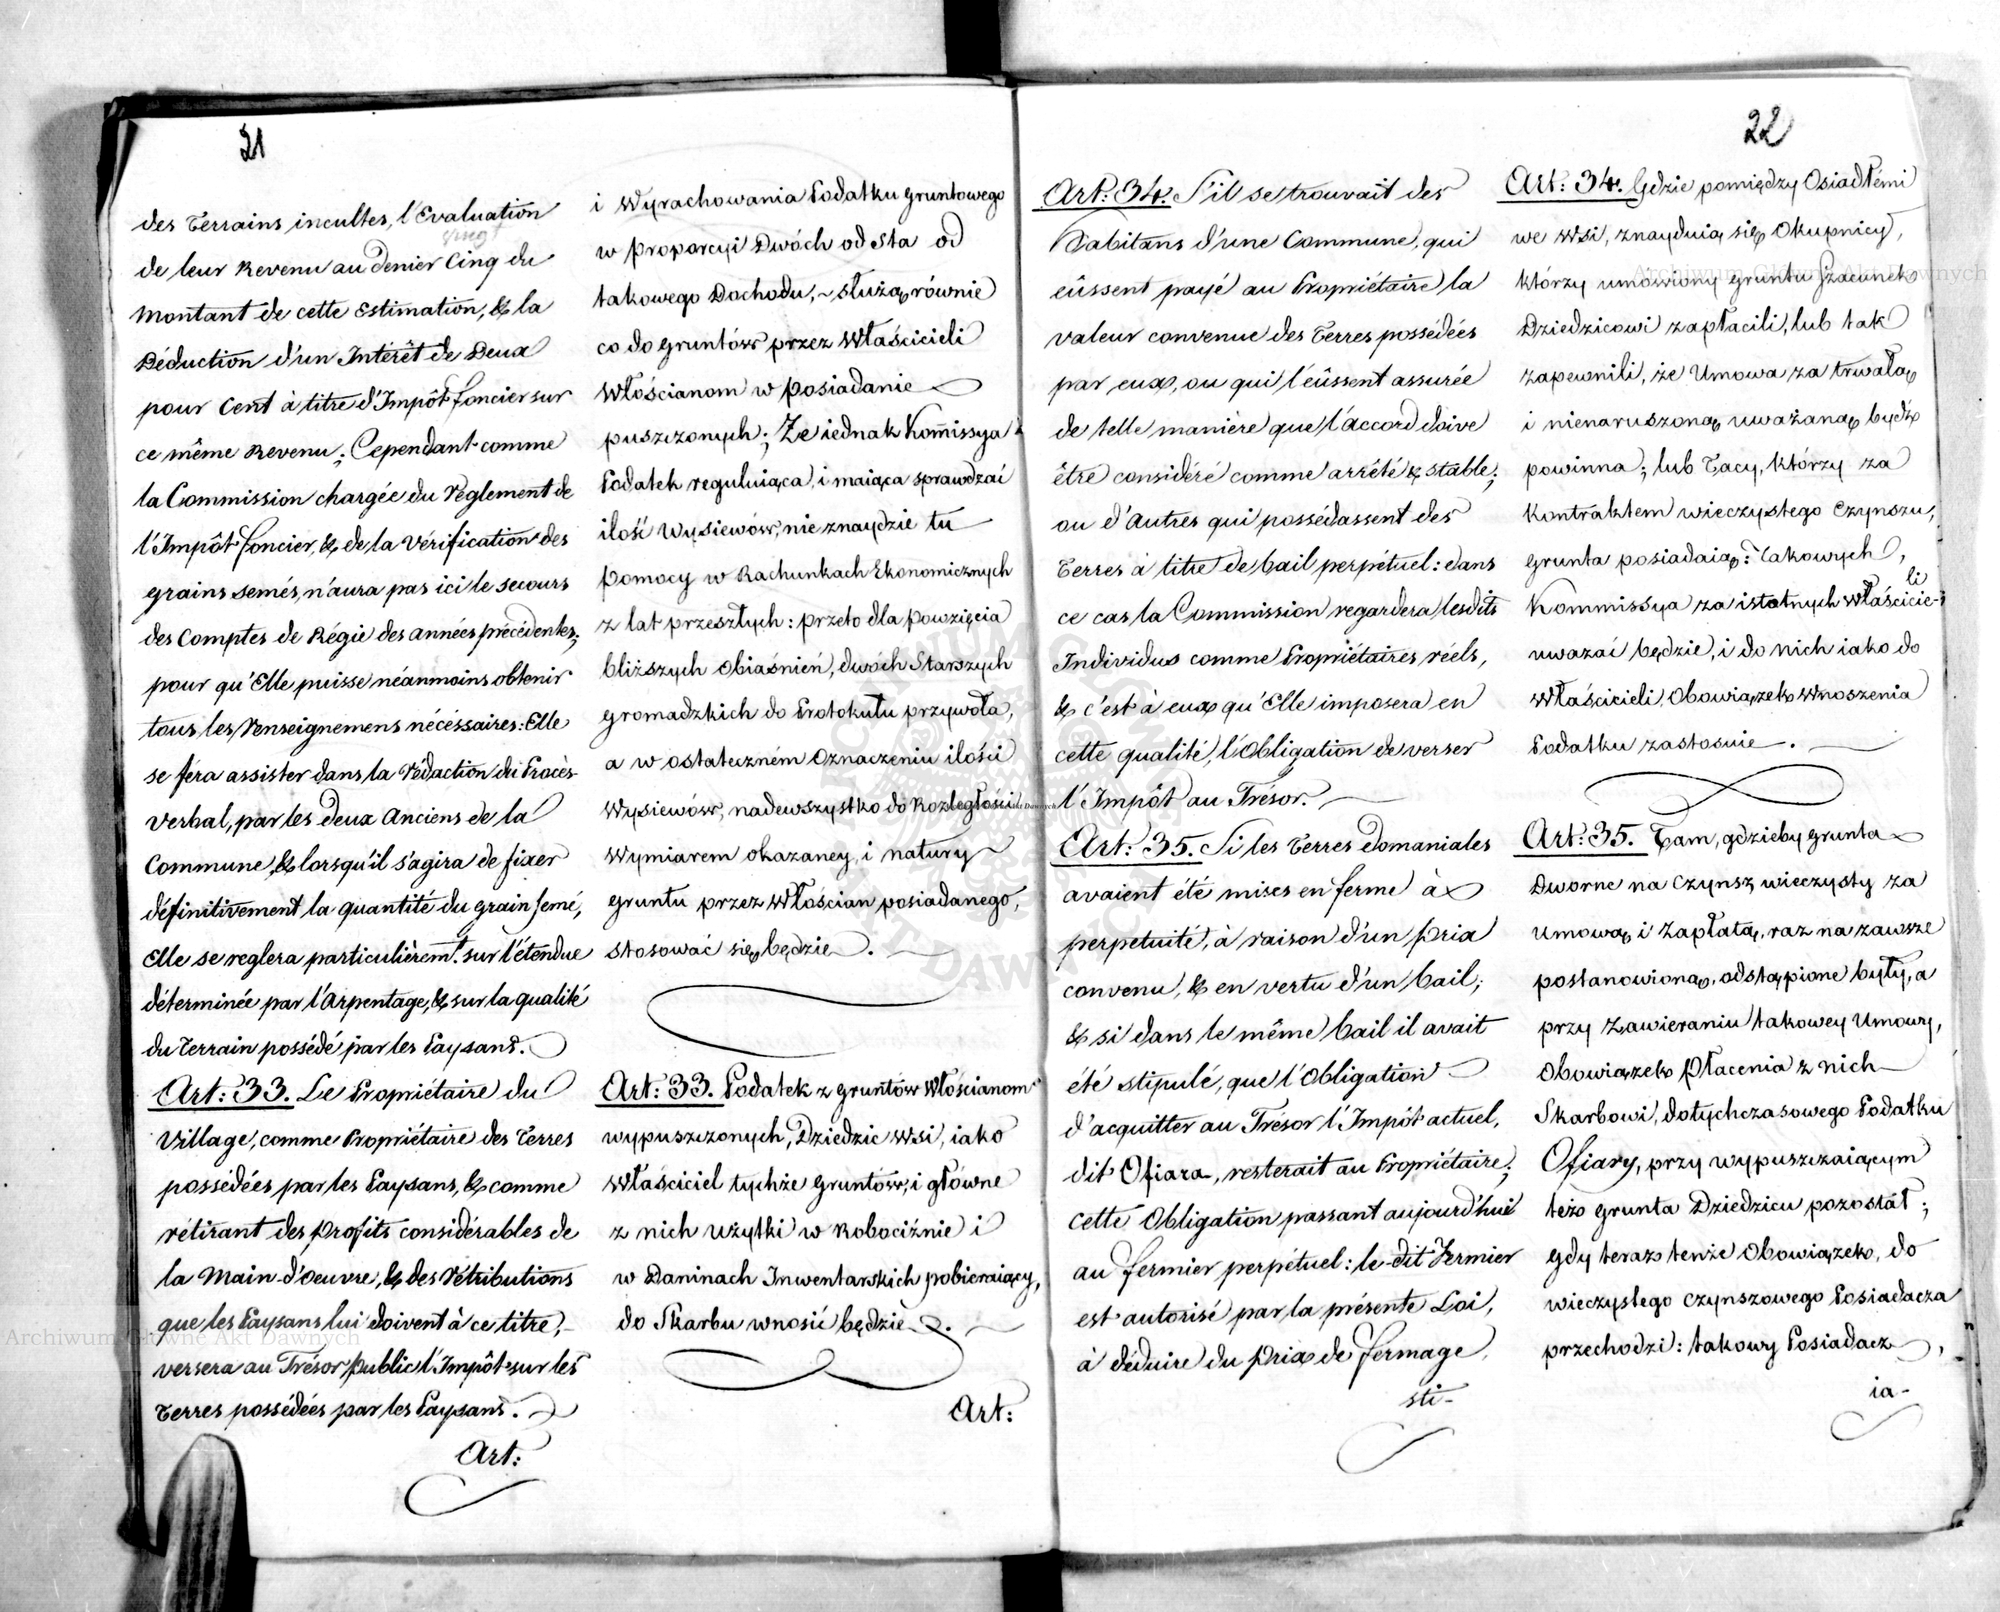 21
des Terrains incultes, l'Evaluation
de leur Revenu au denier Cinq du
Montant de cette Estimation, & la
Déduction d'un Interêt de Deux
pour Cent à titre d'Impôt foncier sur
ce même Revenu; Cependant comme
la Commission chargée du Réglement de
l'Impôt foncier, & de la Vérification des
grains semés, n'aura pas ici le secours
des Comptes de Régie des années précédentes;
pour qu'Elle puisse néanmoins obtenir
tous les Renseignemens nécéssaires: Elle
se fera assister dans la Rédaction du Procès-
Verbal, par les deux Anciens de la
Commune, & lorsqu'il s'agira de fixer
définitivement la quantité du grain semé,
Elle se reglera particulièremt. sur l'étendue
déterminée par l'Arpentage, & sur la qualité
du Terrain possédé par les Paysans.
Art: 33. Le Propriétaire du
Village, comme Propriétaire des Terres
possédées par les Paysans, & comme
rétirant des profits considérables de
la Main-d'Oeuvre, & des Rétributions
que les Paysans lui doivent à ce titre,
versera au Trésor Public l'Impôt sur les
Terres possédées par les Paysans.
Art:
i Wyrachowania Podatku gruntowego
w proporcyi Dwóch od Sta od
takowego Dochodu, ~ służą równie
co do gruntów przez Właścicieli
Włościanom w posiadanie
puszczonych; Że iednak Kommissya
Podatek reguluiąca, i maiąca sprawdzać
ilość Wysiewów, nie znaydzie tu
pomocy w Rachunkach Ekonomicznych
z lat przeszłych: przeto dla powzięcia
bliższych Obiaśnień, dwóch Starszych
gromadzkich do Protokułu przywoła,
a w ostateczném Oznaczeniu ilości
Wysiewów, nadewszystko do Rozległości
Wymiarem okazaney, i natury
gruntu przez Włościan posiadanego,
stosować się będzie.
Art: 33. Podatek z gruntów Włościanom
wypuszczonych, Dziedzic Wsi, iako
Właściciel tychże gruntów, i główne
z nich Użytki w Robociźnie i
w Daninach Inwentarskich pobieraiący,
do Skarbu wnosić będzie.
Art:
22
Art: 34. S'il se trouvait des
Habitans d'une Commune, qui
eûssent payé au Propriétaire la
valeur convenue des Terres possédées
par eux, ou qui l'eûssent assurée
de telle manière que l'Accord doive
être considéré comme arrêté & stable;
ou d'Autres qui possédassent des
Terres à titre de bail perpétuel: dans
ce cas la Commission regardera lesdits
Individus comme Propriétaires réels,
& c'est à eux qu'Elle imposera en
cette qualité, l'Obligation de verser
l'Impôt au Trésor.
Art: 35. Si les Terres Domaniales
avaient été mises en ferme à
perpetuité, à raison d'un prix
convenu, & en vertu d'un bail;
& si dans le même bail il avait
été stipulé, que l'Obligation
d'acquitter au Trésor l'Impôt actuel,
dit Ofiara, resterait au Propriétaire;
cette Obligation passant aujourd'hui
au fermier perpétuel: le-dit Fermier
est autorisé par la présente Loi,
à déduire du prix de fermage,
sti-
Art: 34. Gdzie pomiędzy Osiadłémi
we Wsi, znayduią się Okupnicy,
którzy umówiony gruntu Szacunek
Dziedzicowi zapłacili, lub tak
zapewnili, że Umowa za trwałą
i nienaruszoną uważaną bydź
powinna; lub Tacy, którzy za
Kontraktem wieczystego Czynszu,
grunta posiadaią: Takowych,
Kommissya za istotnych Właścicieli
uważać będzie, i do nich iako do
Właścicieli, Obowiązek Wnoszenia
Podatku zastosuie.
Art: 35. Tam, gdzieby grunta
Dworne na Czynsz wieczysty za
Umową i Zapłatą, raz na zawsze
postanowioną, odstąpione były, a
przy Zawieraniu takowey Umowy,
Obowiązek płacenia z nich
Skarbowi, dotychczasowego Podatku
Ofiary, przy wypuszczaiącym
też grunta Dziedzicu pozostał;
gdy teraz tenże Obowiązek, do
wieczystego czynszowego Posiadacza
przechodzi: takowy Posiadacz,
ia-